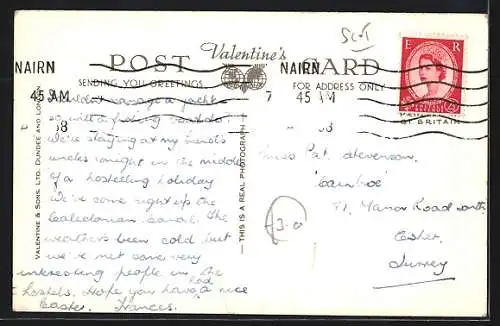 Sc-I
POST Valentine's CARD
SENDING YOU GREETINGS
FOR ADDRESS ONLY
NAIRN
45 AM
8
NAIRN
7 45 AM
8
E R
OF BRITAIN
VALENTINE & SONS. LTD. DUNDEE AND LONDON
THIS IS A REAL PHOTOGRAPH
a yacht
so with a fishing
We're staying at my
uncles tonight in the middle
of a hostelling holiday
We've come right up the
Caledonian Canal. The
weather's been cold but
we've met some very
interesting people in the
hostels. Hope you have had a nice
Easter. Frances.
Miss Pat Stevenson,
Manor Road South
Esher,
Surrey